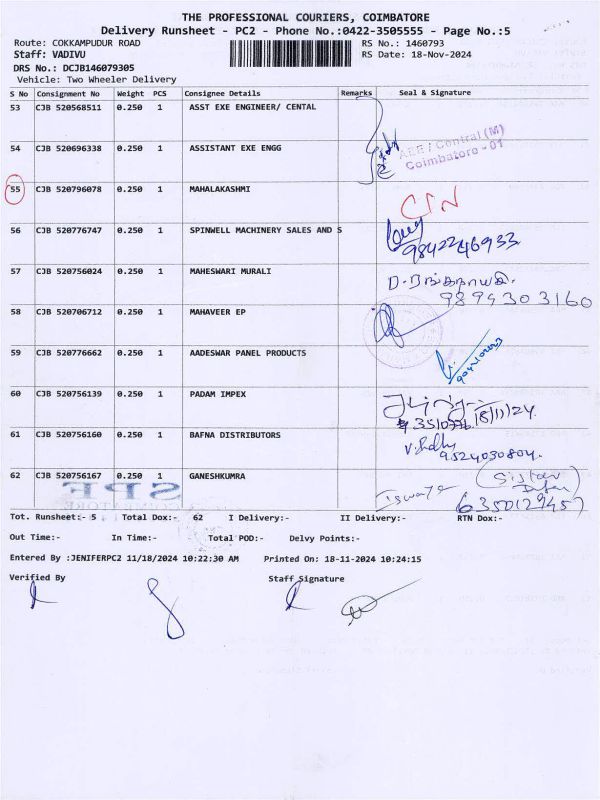 THE PROFESSIONAL COURIERS, COIMBATORE
Delivery Runsheet - PC2 - Phone No.:0422-3505555 - Page No.:5
Route: COKKAMPUDUR ROAD RS No.: 1460793
Staff: VADIVU RS Date: 18-Nov-2024
DRS No.: DCJB146079305
Vehicle: Two Wheeler Delivery
S No Consignment No Weight PCS Consignee Details Remarks Seal & Signature
53 CJB 520568511 0.250 1 ASST EXE ENGINEER/ CENTAL
54 CJB 520696338 0.250 1 ASSISTANT EXE ENGG
AEE / Central (M)
Coimbatore - 01
55 CJB 520796078 0.250 1 MAHALAKASHMI
56 CJB 520776747 0.250 1 SPINWELL MACHINERY SALES AND S
9842246933
57 CJB 520756024 0.250 1 MAHESWARI MURALI
9894303160
58 CJB 520706712 0.250 1 MAHAVEER EP
59 CJB 520776662 0.250 1 AADESWAR PANEL PRODUCTS
60 CJB 520756139 0.250 1 PADAM IMPEX
18/11/24
61 CJB 520756160 0.250 1 BAFNA DISTRIBUTORS
9524030804
62 CJB 520756167 0.250 1 GANESHKUMRA
SPE
Tot. Runsheet:- 5 Total Dox:- 62 I Delivery:- II Delivery:- RTN Dox:-
Out Time:- In Time:- Total POD:- Delvy Points:-
Entered By :JENIFERPC2 11/18/2024 10:22:30 AM Printed On: 18-11-2024 10:24:15
Verified By Staff Signature